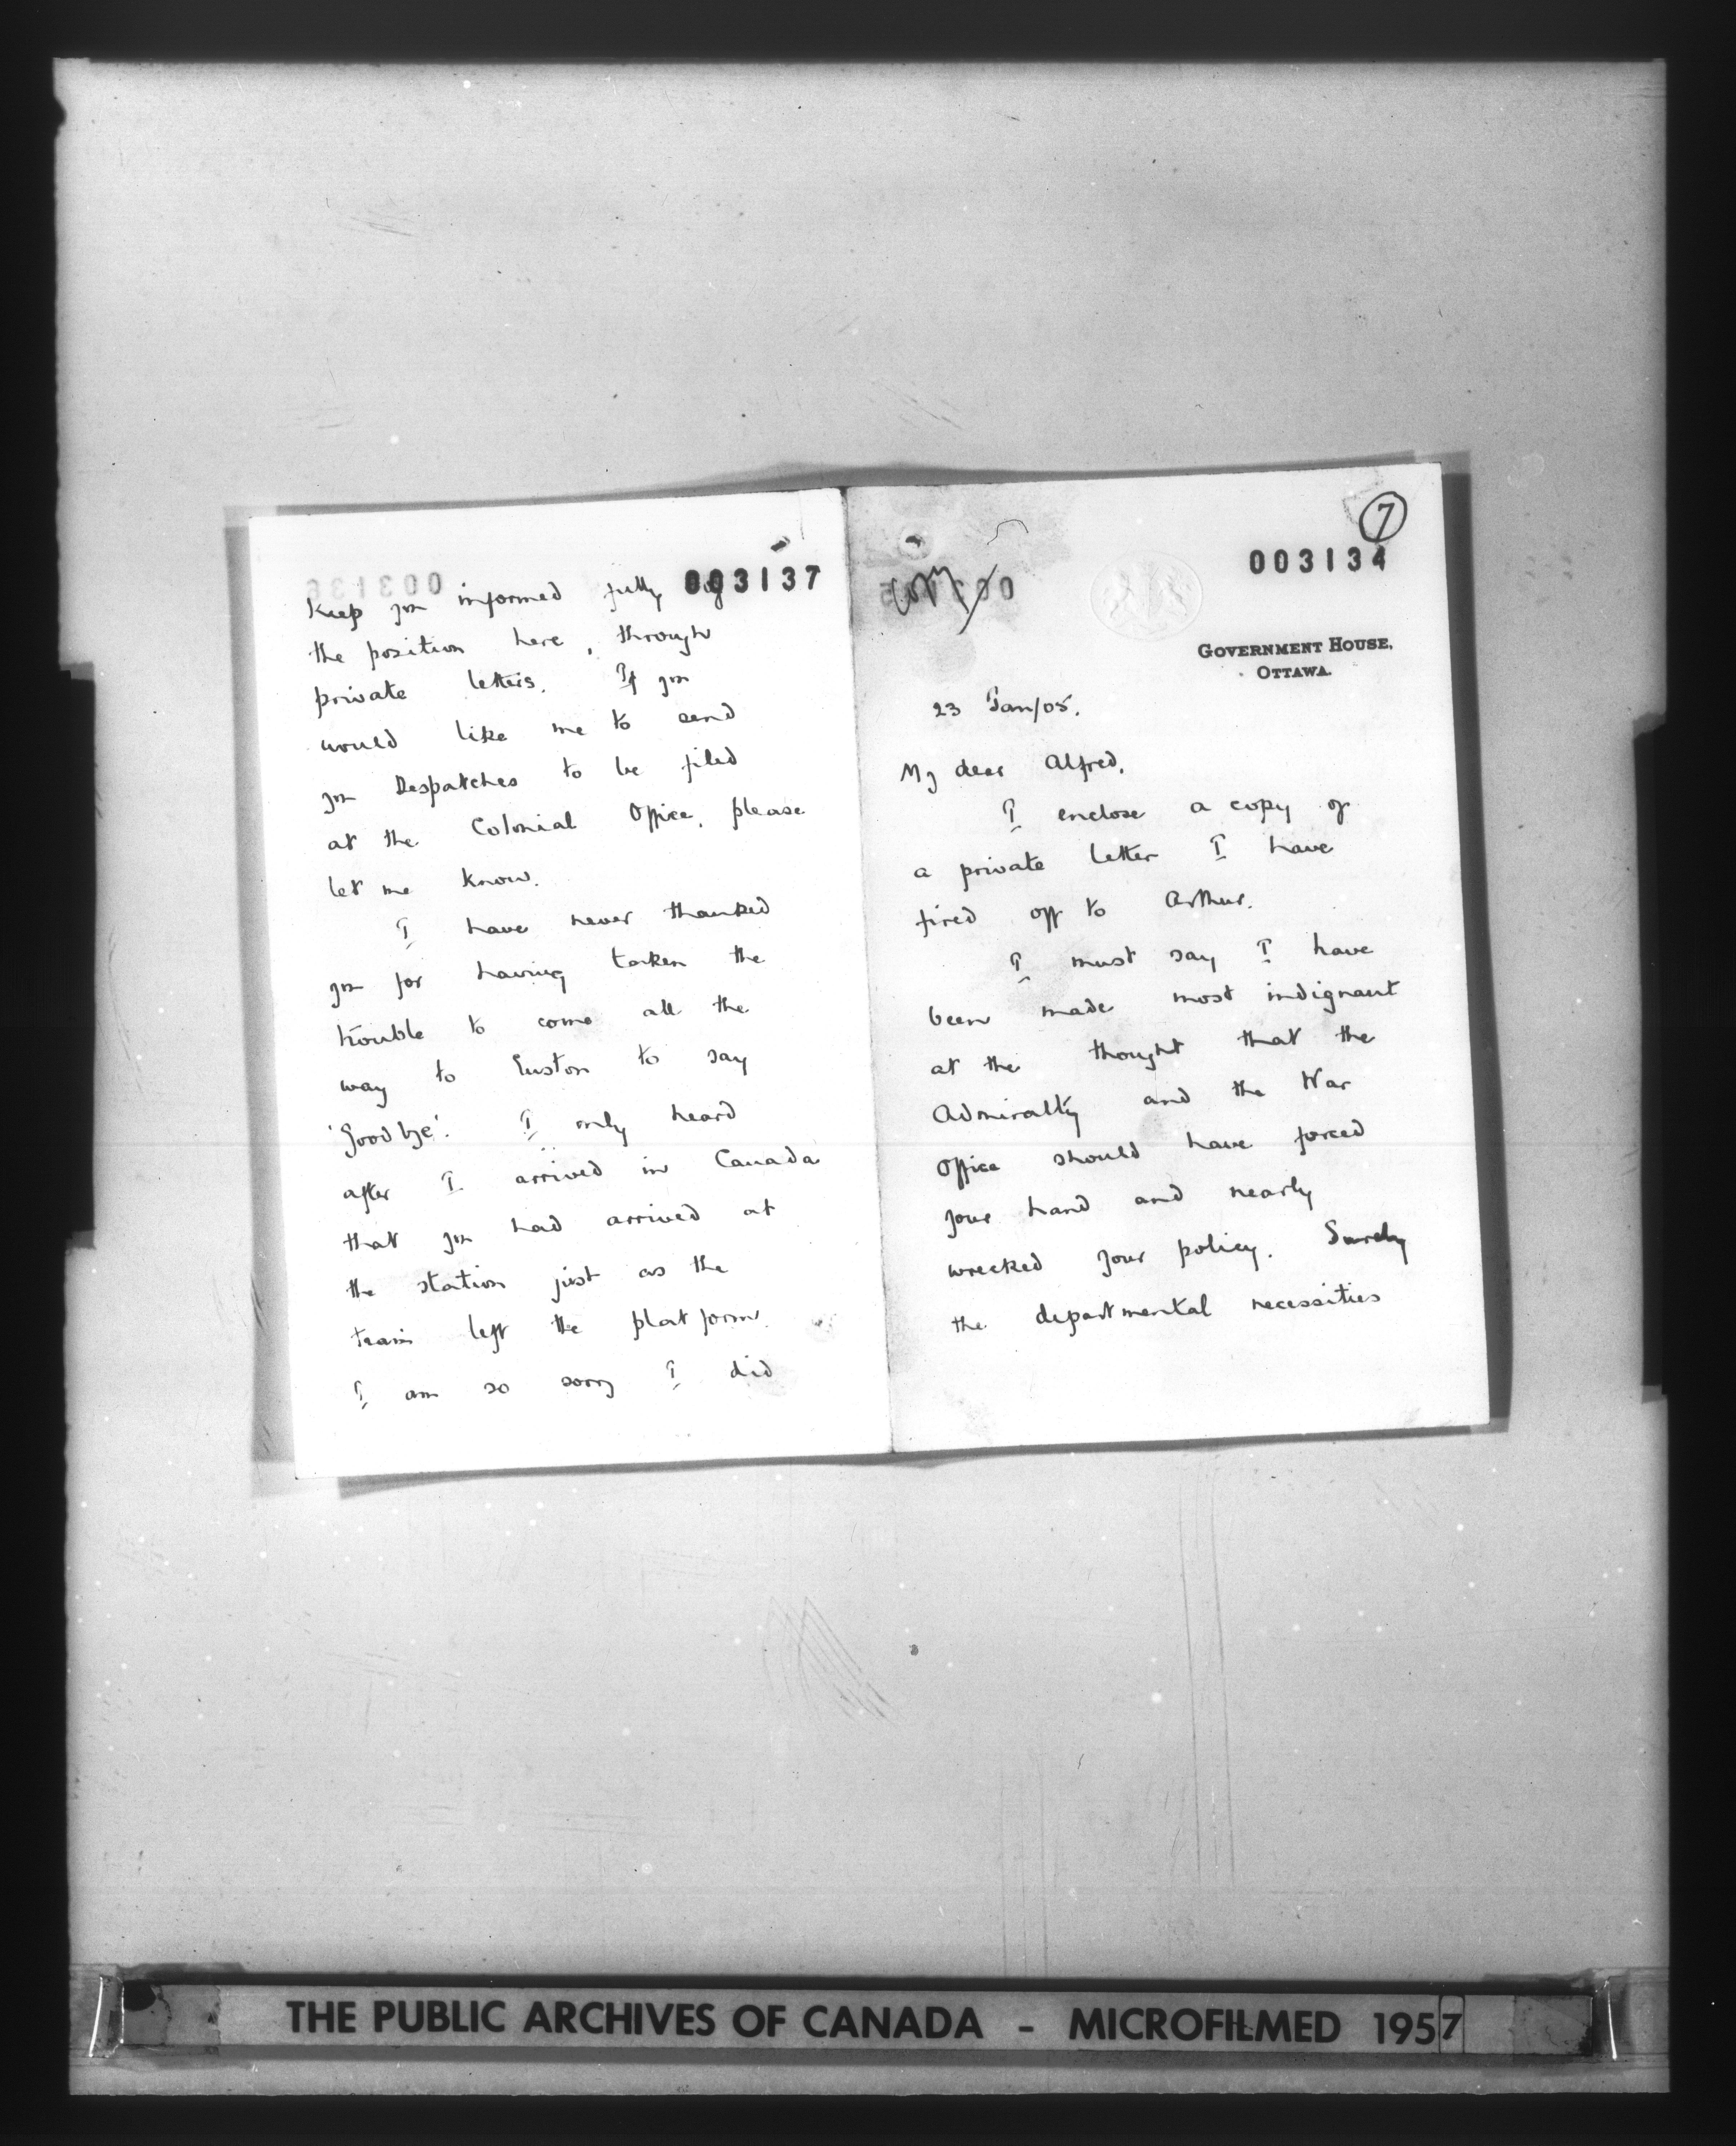 003137
Keep you informed fully of
the position here, through
private letters. If you
would like me to send
you Despatches to be filed
at the Colonial Office, please
let me know.
I have never thanked
you for having taken the
trouble to come all the
way to Euston to say
'Goodbye'. I only heard
after I arrived in Canada
that you had arrived at
the station just as the
train left the platform.
I am so sorry I did
7
003134
Copy
GOVERNMENT HOUSE,
OTTAWA.
23 Jan/05.
My dear Alfred,
I enclose a copy of
a private letter I have
fired off to Arthur.
I must say I have
been made most indignant
at the thought that the
Admiralty and the War
Office should have forced
your hand and nearly
wrecked your policy. Surely
the departmental necessities
THE PUBLIC ARCHIVES OF CANADA - MICROFILMED 1957